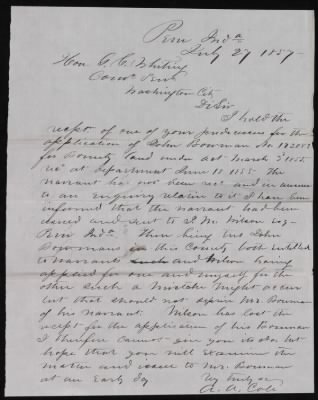 Peru Inda
July 27 1857
Hon G. C. Whiting
Com Pen
Washington City
D Sir
I hold the
recpt of one of your predecessors for the
application of John Bowman No
for Bounty land under act March 3 1855
recd at department June 18 1855 The
warrant has not been recd and in answer
to an inquiry relative to it I have been
informed that the warrant had been
issued and sent to Wilson esq
Peru Inda There being two John
Bowmans in this County both entitled
to warrants and Wilson having
applied for one and myself for the
other such a mistake might occur
but that should not deprive Mr. Bowman
of his warrant. Wilson has lost the
recpt for the application of his Bowman
I therefore cannot give you its date but
hope that you will examine the
matter and issue to Mr. Bowman
at an Early day
A. A. Cole